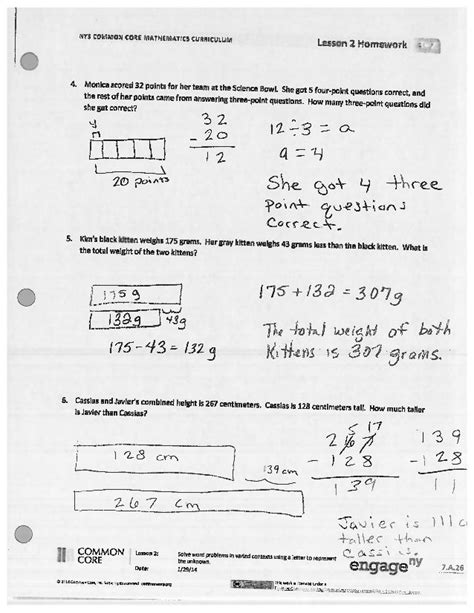 NYS COMMON CORE MATHEMATICS CURRICULUM
Lesson 2 Homework
4. Monica scored 32 points for her team at the Science Bowl. She got 5 four-point questions correct, and
the rest of her points came from answering three-point questions. How many three-point questions did
she get correct?
4
20 points
32
- 20
12
12 ÷ 3 = a
a = 4
She got 4 three
point questions
correct.
5. Kim's black kitten weighs 175 grams. Her gray kitten weighs 43 grams less than the black kitten. What is
the total weight of the two kittens?
175g
132g 43g
175-43 = 132 g
175 + 132 = 307g
The total weight of both
kittens is 307 grams.
6. Cassias and Javier's combined height is 267 centimeters. Cassias is 128 centimeters tall. How much taller
is Javier than Cassias?
128 cm
139 cm
267 cm
5 17
267
- 128
139
139
- 128
11
Javier is 11 c
taller than
COMMON
CORE
Lesson 2:
Date:
Solve word problems in varied contexts using a letter to represent
the unknown.
1/29/14
engage ny
7.A.26